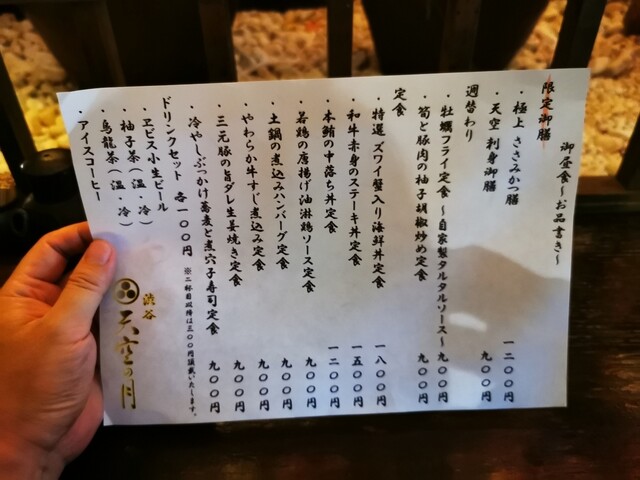 御昼食～お品書き～
限定御膳
・極上 ささみかつ膳 一二〇〇円
・天空 刺身御膳 九〇〇円
週替わり
・牡蠣フライ定食 ～自家製タルタルソース～ 九〇〇円
・筍と豚肉の柚子胡椒炒め定食 九〇〇円
定食
・特選 ズワイ蟹入り海鮮丼定食 一八〇〇円
・和牛赤身のステーキ丼定食 一五〇〇円
・本鮪の中落ち丼定食 一二〇〇円
・若鶏の唐揚げ油淋鶏ソース定食 九〇〇円
・土鍋の煮込みハンバーグ定食 九〇〇円
・やわらか牛すじ煮込み定食 九〇〇円
・三元豚の旨ダレ生姜焼き定食 九〇〇円
・冷やしぶっかけ蕎麦と煮穴子寿司定食 九〇〇円
ドリンクセット 各一〇〇円 ※二杯目以降は三〇〇円頂戴いたします。
・ヱビス小生ビール
・柚子茶（温・冷）
・烏龍茶（温・冷）
・アイスコーヒー
渋谷
天空の月